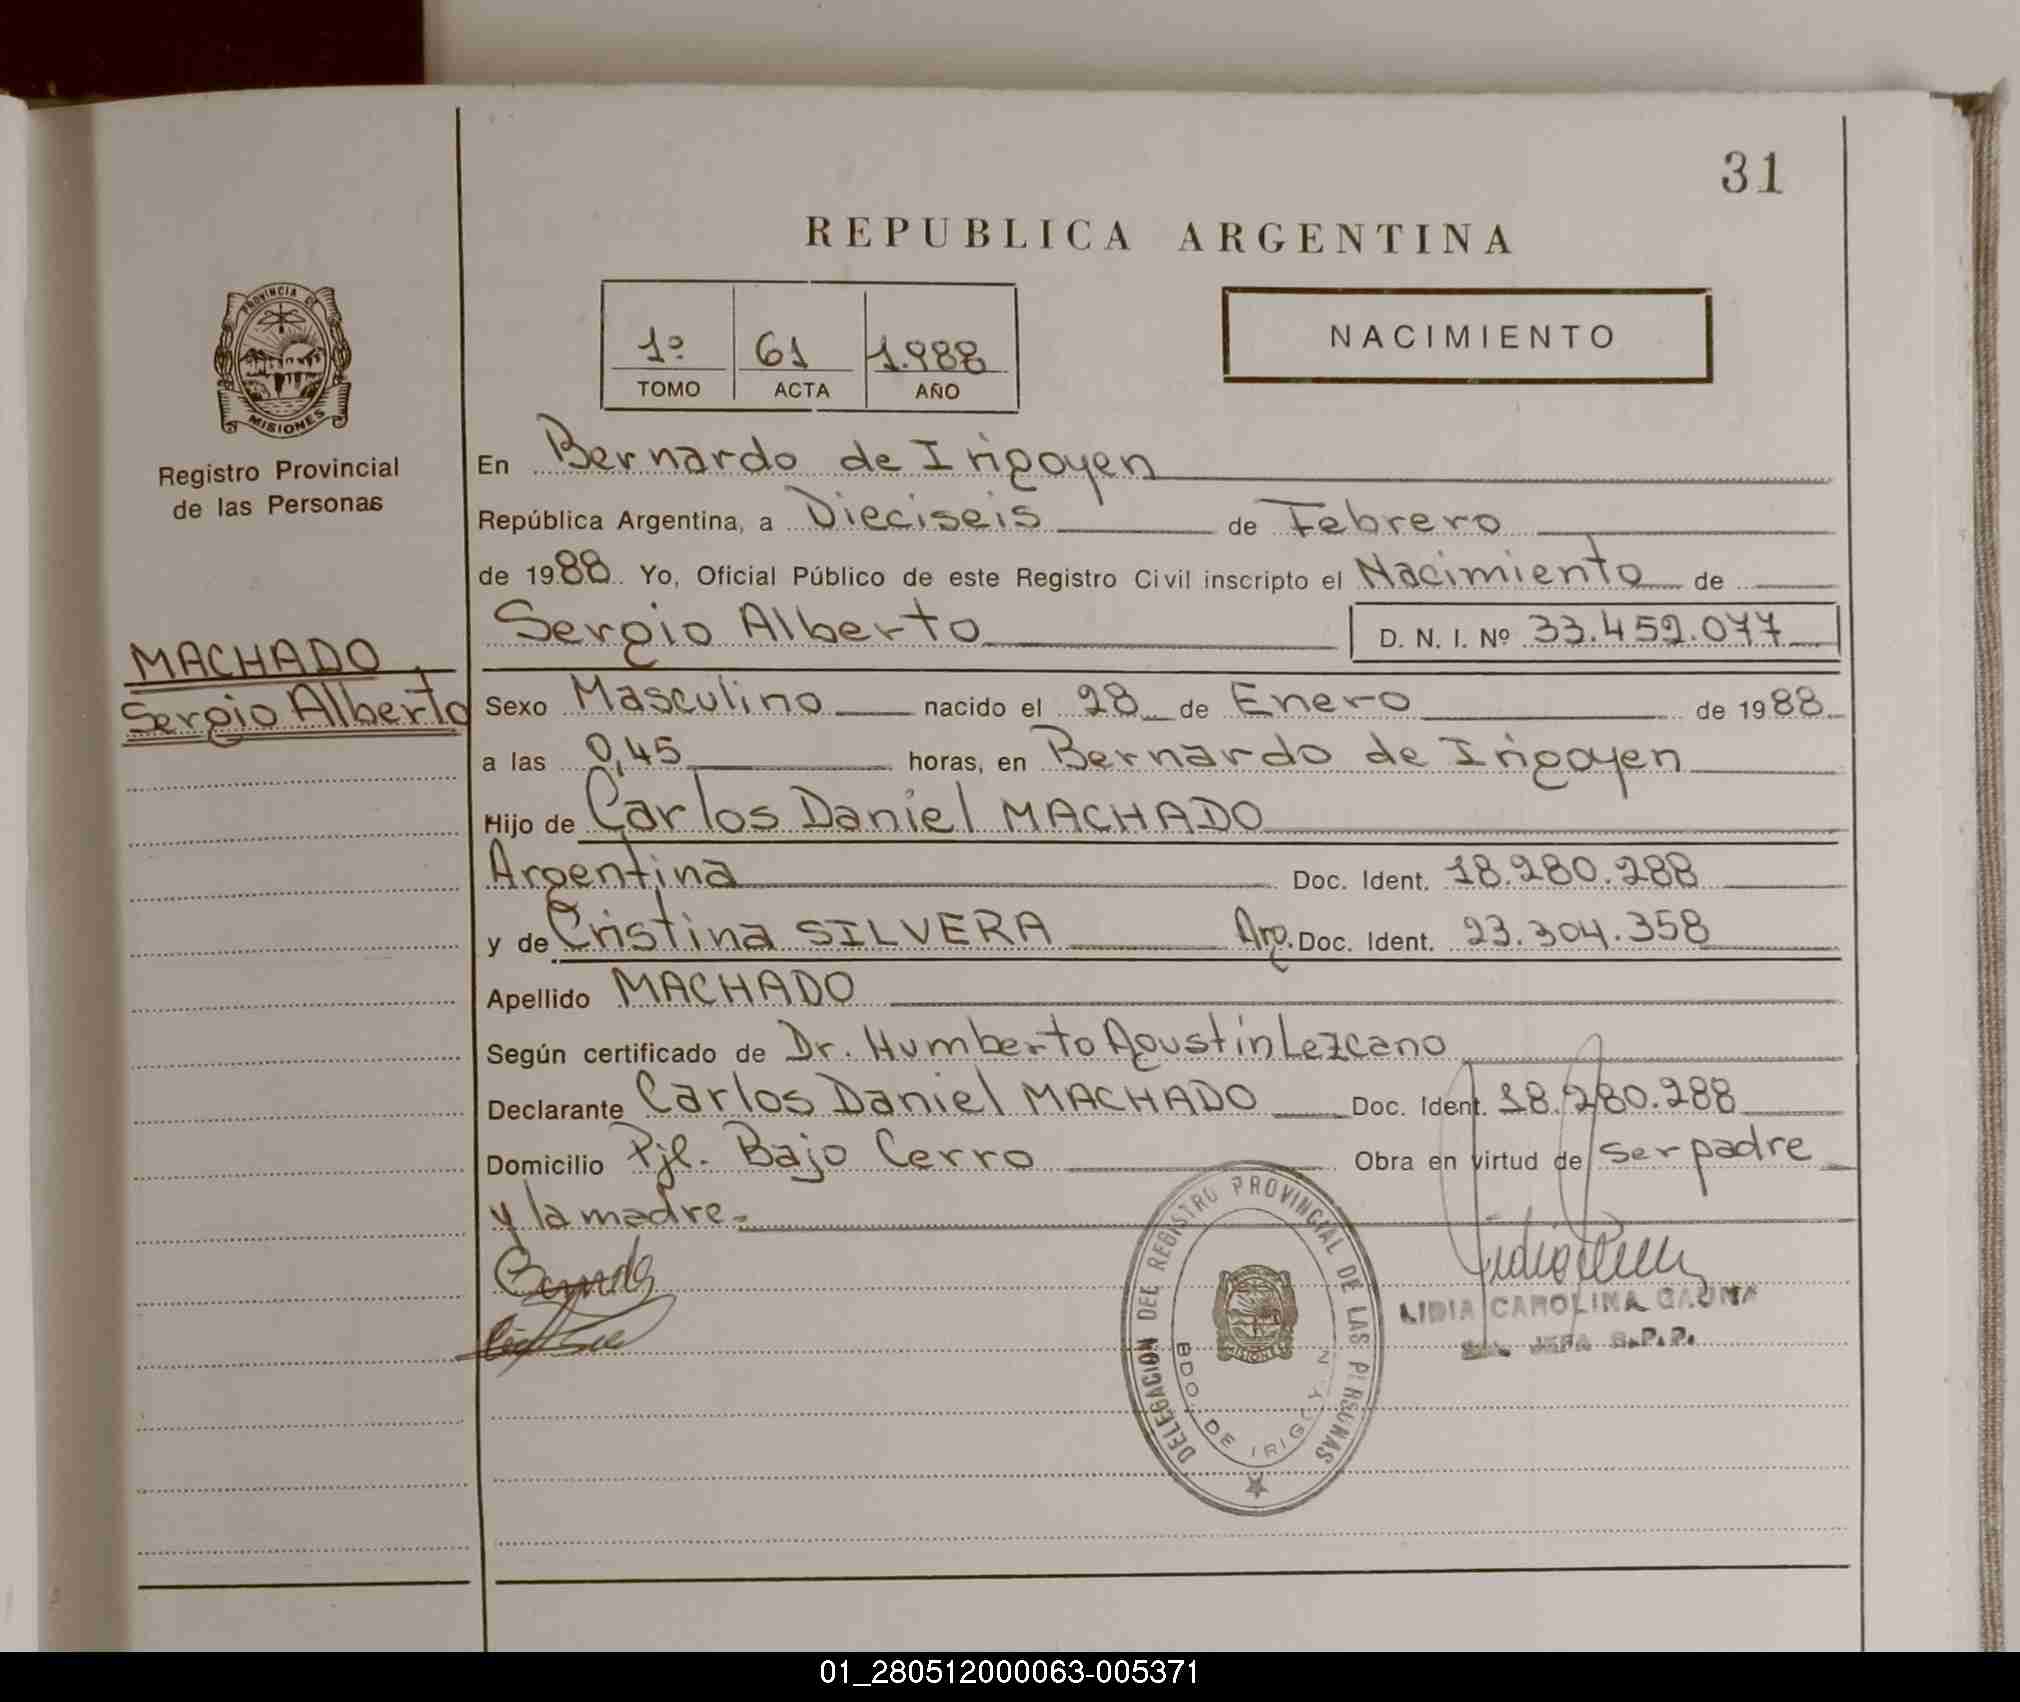 31
REPUBLICA ARGENTINA
1º 61 1.988
TOMO ACTA AÑO
NACIMIENTO
PROVINCIA DE
MISIONES
Registro Provincial
de las Personas
MACHADO
Sergio Alberto
En Bernardo de Irigoyen
República Argentina, a Dieciseis de Febrero
de 1988. Yo, Oficial Público de este Registro Civil inscripto el Nacimiento de
Sergio Alberto D. N. I. Nº 33.452.077
Sexo Masculino nacido el 28 de Enero de 1988
a las 0,45 horas, en Bernardo de Irigoyen
Hijo de Carlos Daniel MACHADO
Argentina Doc. Ident. 18.280.288
y de Cristina SILVERA Arg. Doc. Ident. 23.304.358
Apellido MACHADO
Según certificado de Dr. Humberto Agustín Lezcano
Declarante Carlos Daniel MACHADO Doc. Ident. 18.280.288
Domicilio Pje. Bajo Cerro Obra en virtud de ser padre
y la madre.-
DELEGACION DEL REGISTRO PROVINCIAL DE LAS PERSONAS
MISIONES
BDO. DE IRIGOY
LIDIA CAROLINA GAUNA
JEFA R.P.P.
01_280512000063-005371